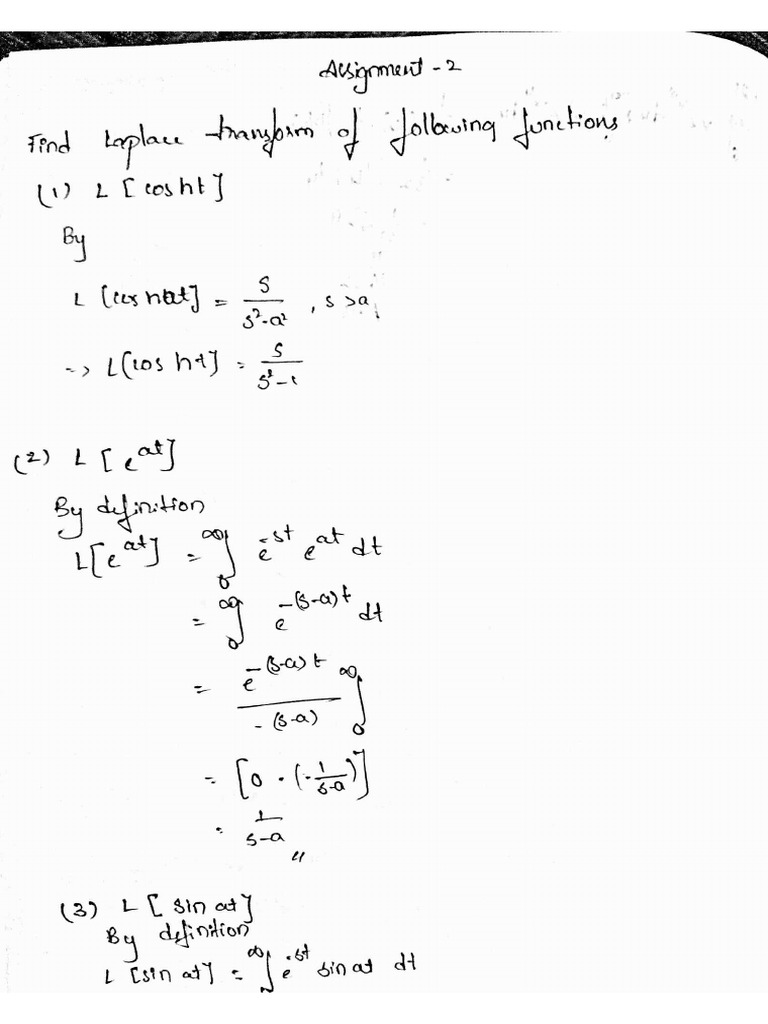 Assignment - 2
Find Laplace transform of following functions
(1) L [cosht]
By
L [cos hat] = s/(s²-a²) , s>a
=> L[cos ht] = s/(s²-1)
(2) L [e^at]
By definition
L[e^at] = ∫₀^∞ e^-st e^at dt
= ∫₀^∞ e^-(s-a)t dt
= e^-(s-a)t / -(s-a) ∫₀^∞
= [0 - (-1/(s-a))]
= 1/(s-a) //
(3) L [sin at]
By definition
L [sin at] = ∫₀^∞ e^-st sin at dt